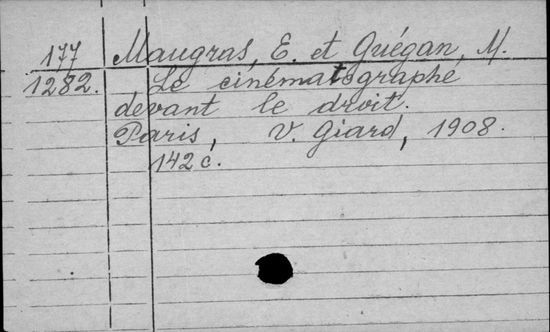 177 Maugras, E. et Guégan, M.
1282. Le cinématographe
devant le droit.
Paris, V. Giard, 1908.
142 c.